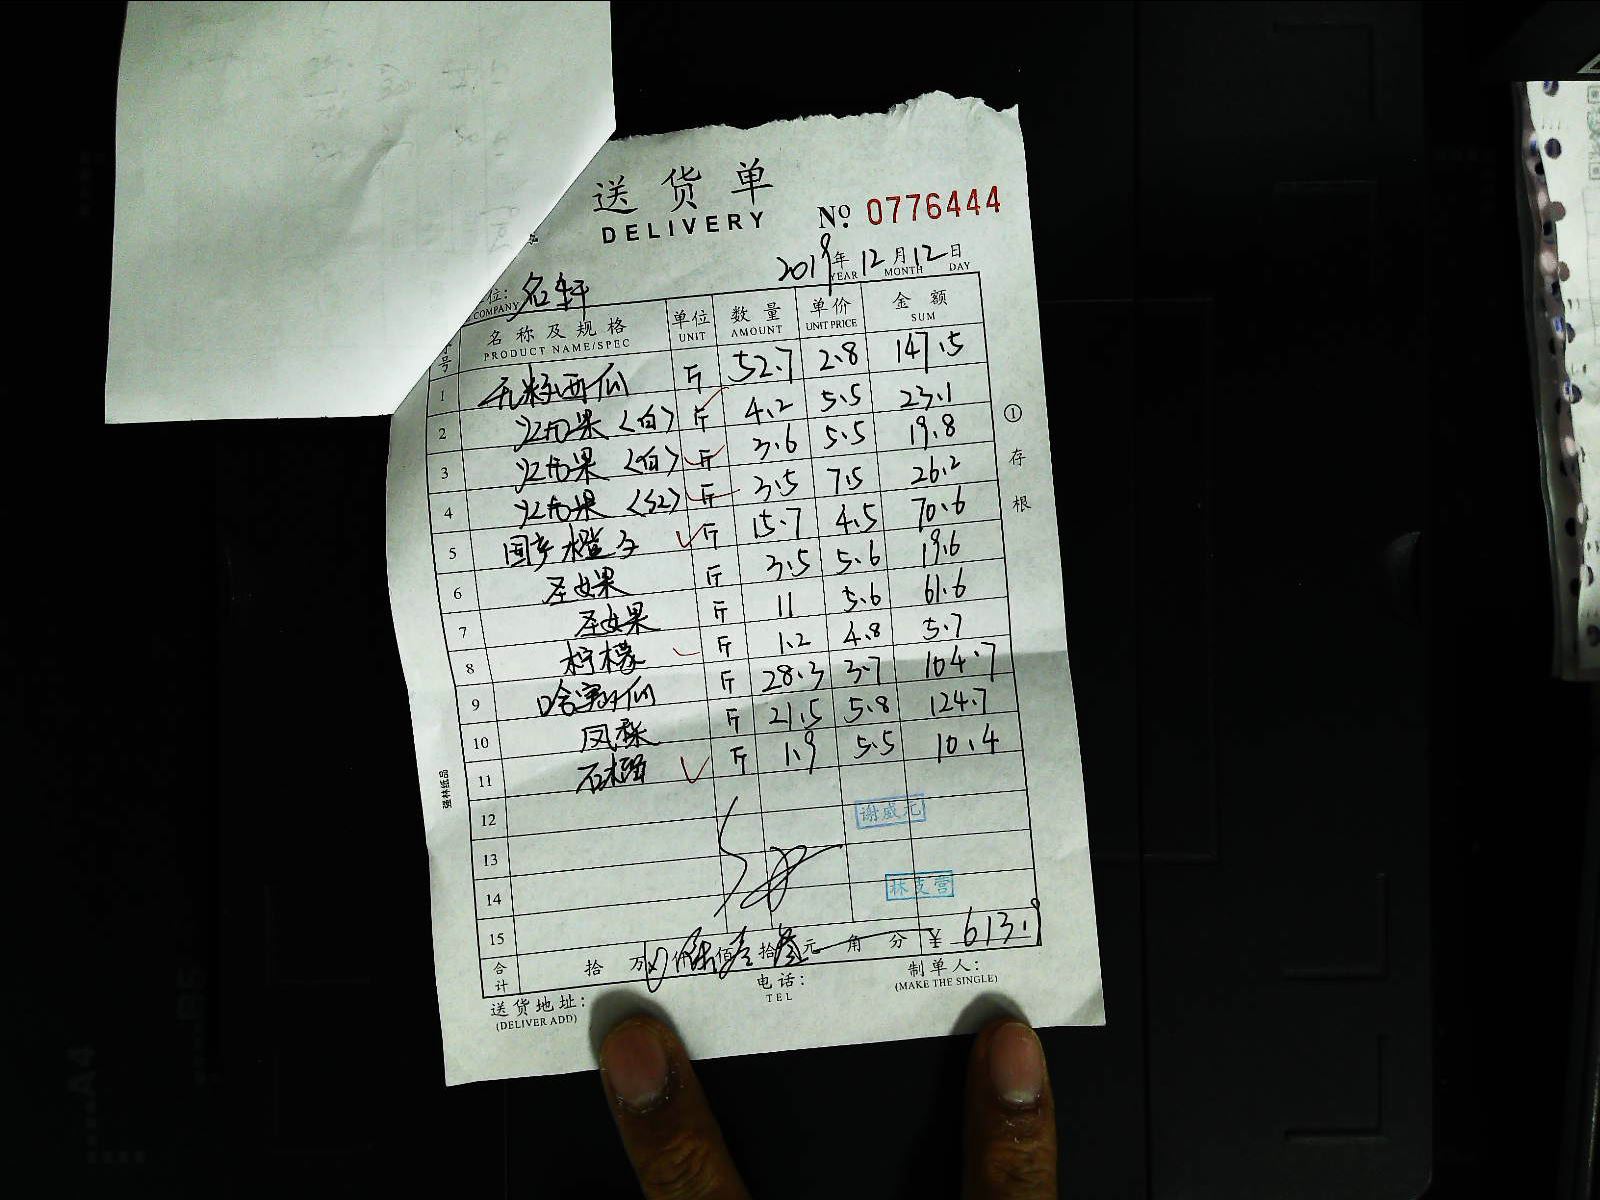 送货单
DELIVERY
№ 0776444
2019年12月12日
YEAR MONTH DAY
位: 名轩
COMPANY
号 名称及规格 单位 数量 单价 金额
PRODUCT NAME/SPEC UNIT AMOUNT UNIT PRICE SUM
1 无籽西瓜 斤 52.7 2.8 147.5
2 火龙果(白) 斤 4.2 5.5 23.1
3 火龙果(白) 斤 3.6 5.5 19.8
4 火龙果(红) 斤 3.5 7.5 26.2
5 国产橙子 斤 15.7 4.5 70.6
6 圣女果 斤 3.5 5.6 19.6
7 圣女果 斤 11 5.6 61.6
8 柠檬 斤 1.2 4.8 5.7
9 哈密瓜 斤 28.3 3.7 104.7
10 凤梨 斤 21.5 5.8 124.7
11 石榴 斤 1.9 5.5 10.4
12
谢威元
13
14
林支营
15
合计 拾 万 仟 陆佰 壹拾 叁元 角 分 ¥ 613.9
送货地址: 电话: 制单人:
(DELIVER ADD) TEL (MAKE THE SINGLE)
①存根
强林纸品